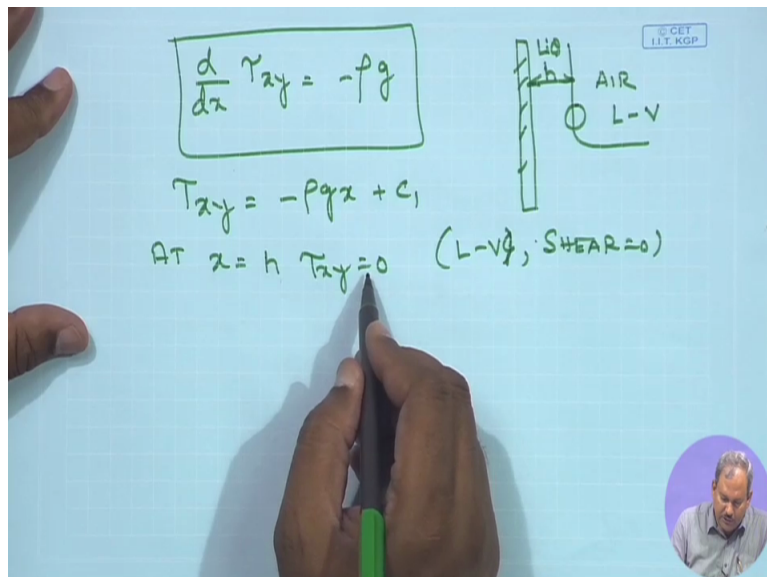 © CET
I.I.T. KGP
d/dx τxy = -ρg
LIQ
h
AIR
L-V
τxy = -ρgx + c1
AT x = h τxy = 0 (L-V, SHEAR=0)